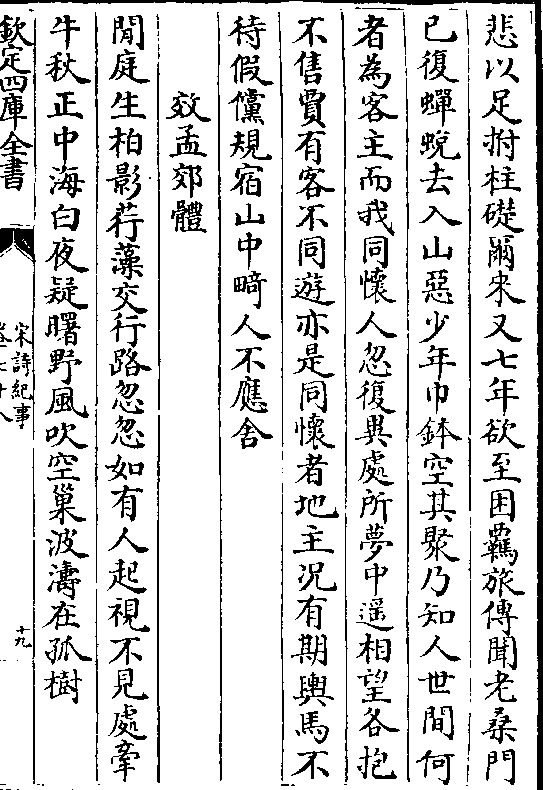 悲以足拊柱礎爾來又七年欲至困羈旅傳聞老桑門
已復蟬蛻去入山惡少年巾鉢空其聚乃知人世間何
者為客主而我同懷人忽復異處所夢中遥相望各抱
不售賈有客不同遊亦是同懷者地主况有期輿馬不
待假儻規宿山中畸人不應舍
效孟郊體
閒庭生柏影荇藻交行路忽忽如有人起視不見處牽
牛秋正中海白夜疑曙野風吹空巢波濤在孤樹
欽定四庫全書
宋詩紀事
十九